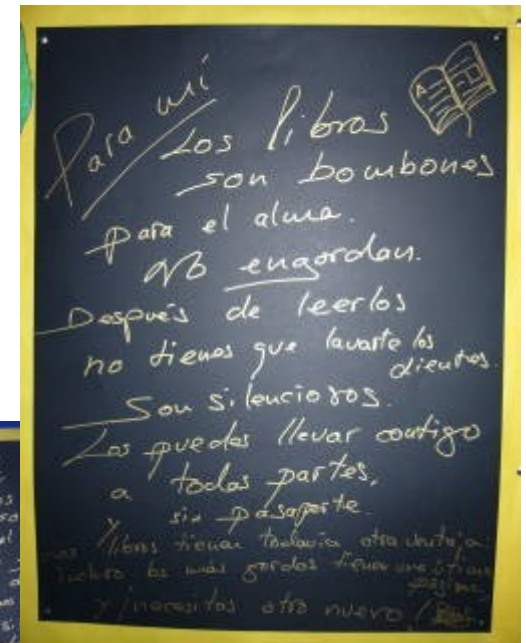 Para mí
Los libros
son bombones
para el alma.
No engordan.
Después de leerlos
no tienes que lavarte los
dientes.
Son silenciosos.
Los puedes llevar contigo
a todas partes,
y sin pasaporte.
Los libros tienen todavía otra ventaja
incluso los más gordos tienen una última
página
y necesitas otro nuevo